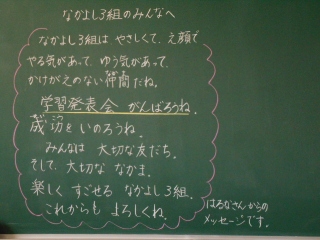 なかよし3組のみんなへ
なかよし3組は やさしくて、え顔で
やる気があって、ゆう気があって、
かけがえのない仲間だね。
学習発表会 がんばろうね。
成功をいのろうね。
みんなは 大切な友だち。
そして、大切な なかま。
楽しく すごせる なかよし3組。
これからも よろしくね。
はるなさんからの
メッセージです。